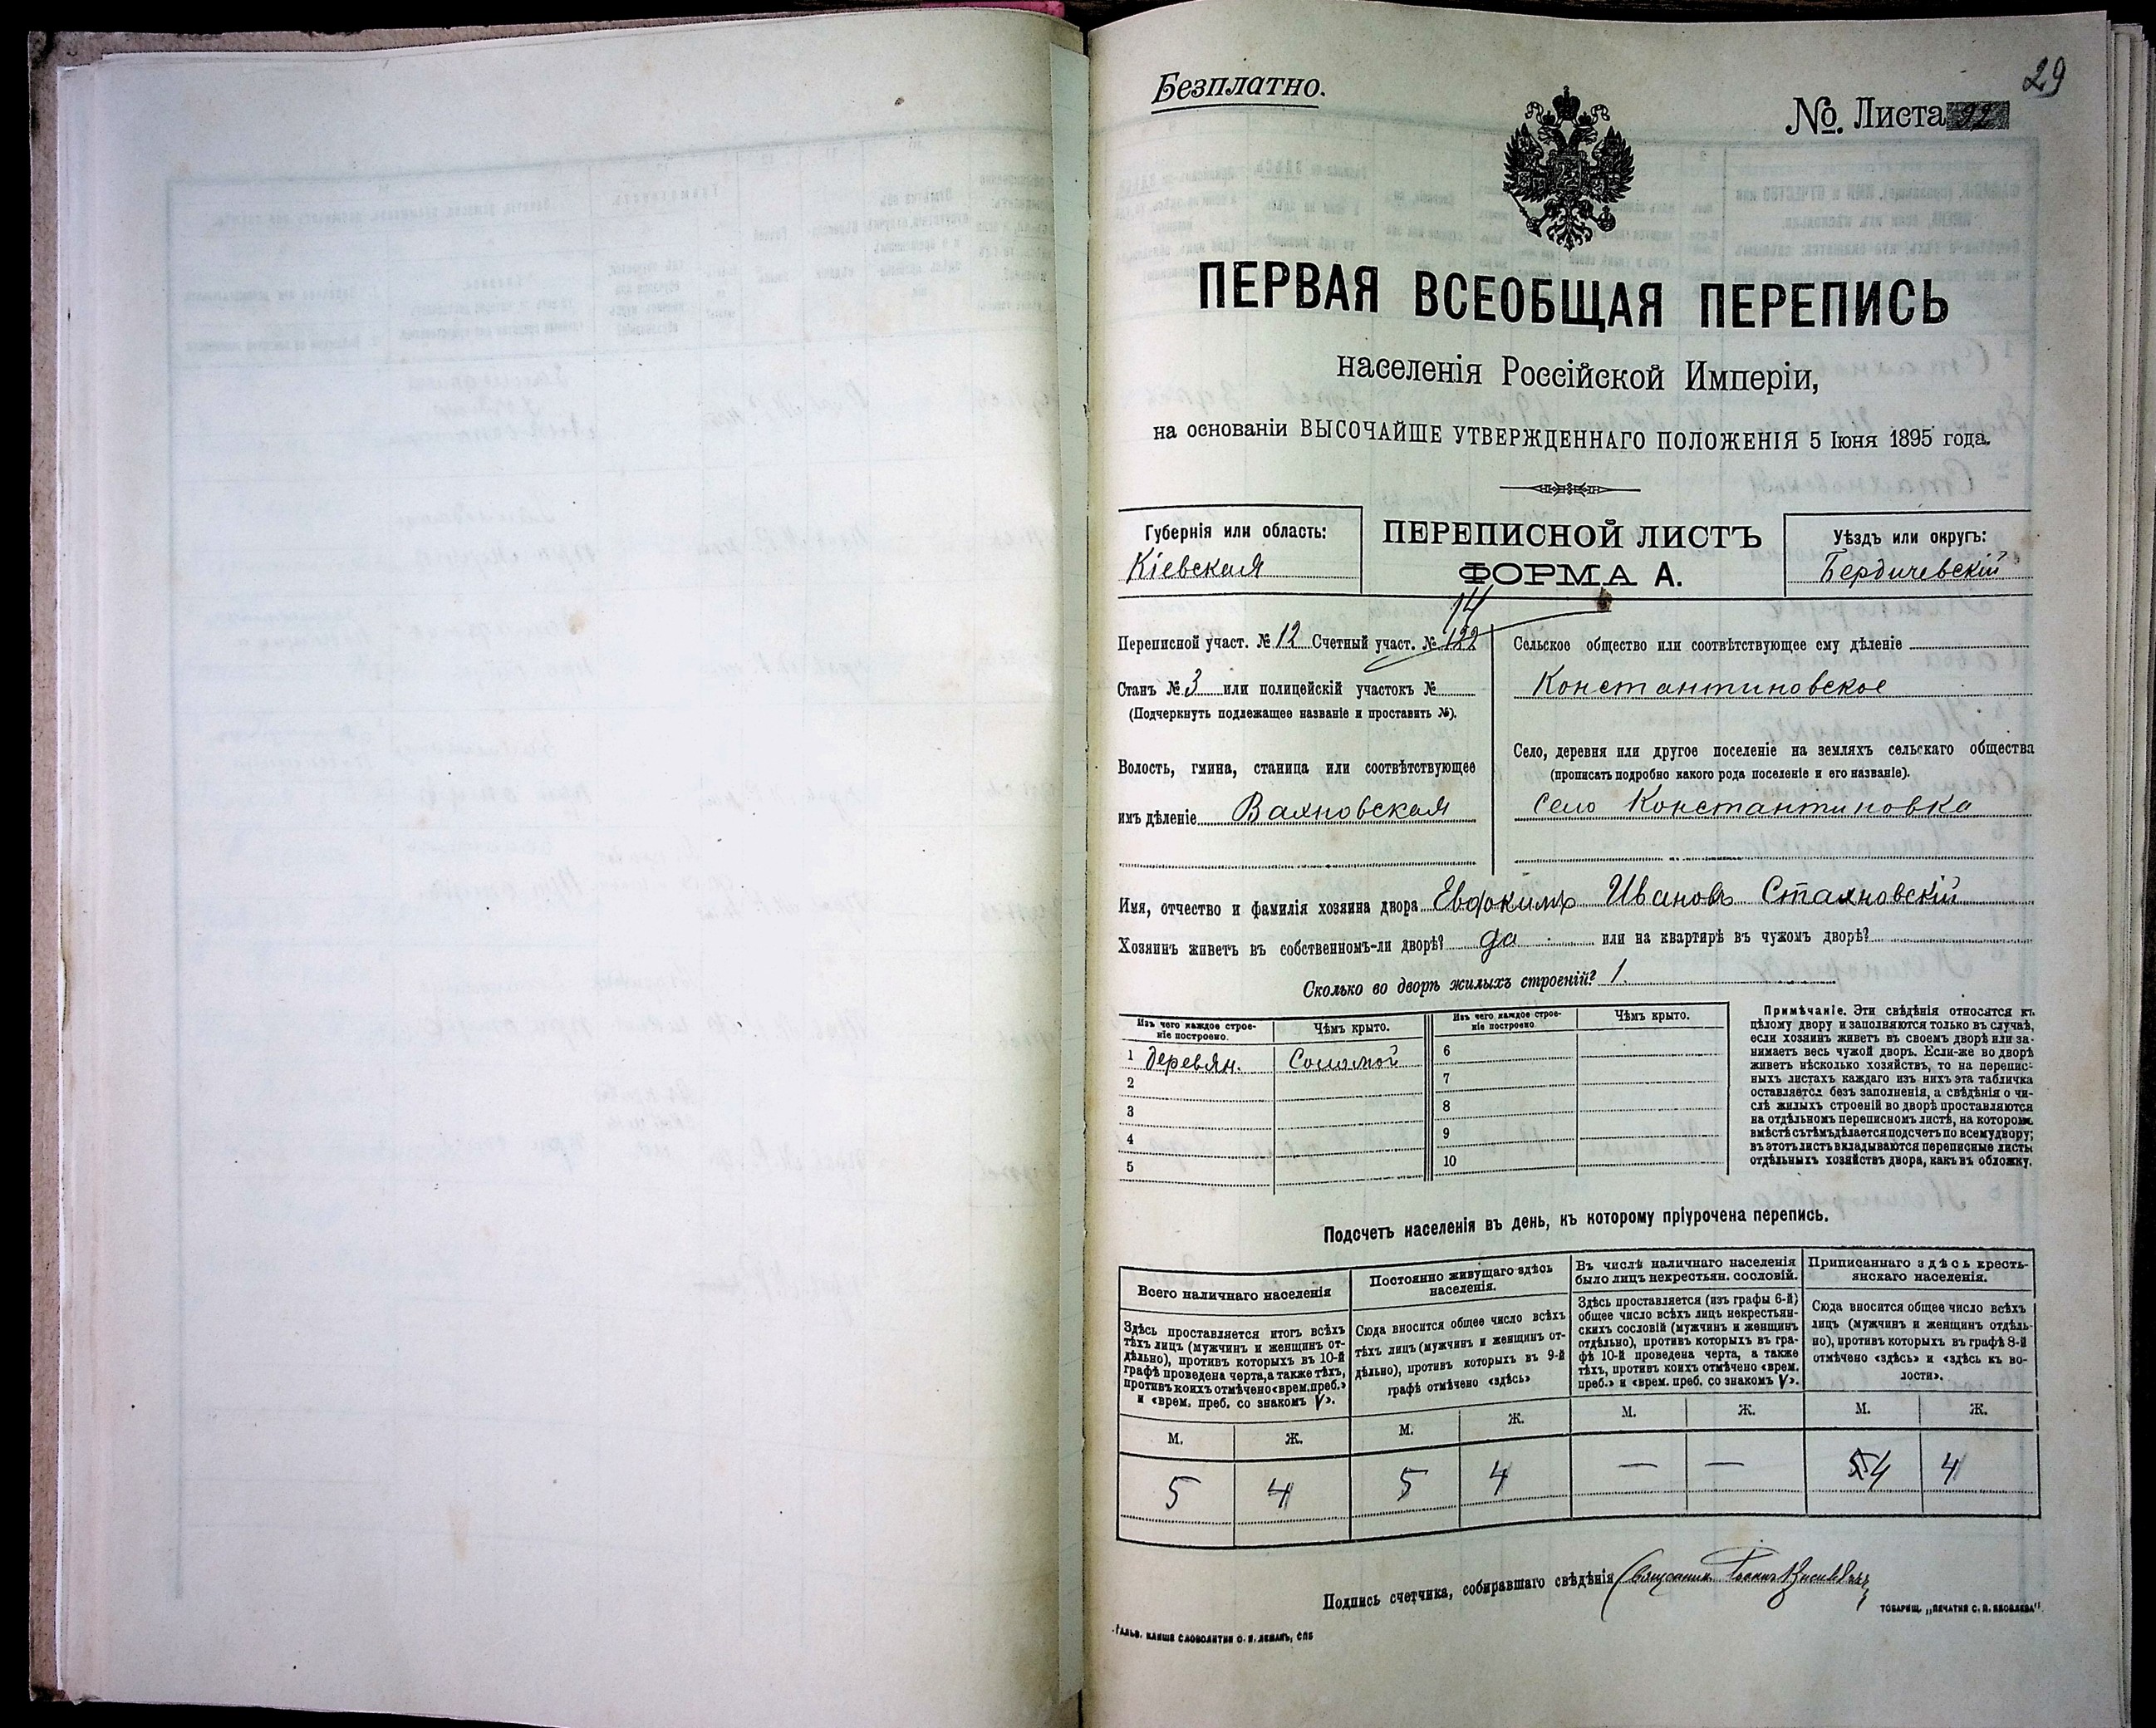 29
Безплатно.
№. Листа 92
ПЕРВАЯ ВСЕОБЩАЯ ПЕРЕПИСЬ
населенія Россійской Имперіи,
на основаніи ВЫСОЧАЙШЕ УТВЕРЖДЕННАГО ПОЛОЖЕНІЯ 5 Іюня 1895 года.
Губернія или область:
Кіевская
ПЕРЕПИСНОЙ ЛИСТЪ
ФОРМА А.
Уѣздъ или округъ:
Бердичевскій
14
Переписной участ. № 12 Счетный участ. № 122
Станъ № 3 или полицейскій участокъ №
(Подчеркнуть подлежащее названіе и проставить №).
Волость, гмина, станица или соотвѣтствующее
имъ дѣленіе Вахновская
Сельское общество или соотвѣтствующее ему дѣленіе
Константиновское
Село, деревня или другое поселеніе на земляхъ сельскаго общества
(прописать подробно какого рода поселеніе и его названіе).
Село Константиновка
Имя, отчество и фамилія хозяина двора Евдокимъ Ивановъ Стахновскій
Хозяинъ живетъ въ собственномъ-ли дворѣ? да или на квартирѣ въ чужомъ дворѣ?
Сколько во дворѣ жилыхъ строеній? 1.
Изъ чего каждое строе-
ніе построено.
Чѣмъ крыто.
Изъ чего каждое строе-
ніе построено
Чѣмъ крыто.
1 деревян. Соломой
2
3
4
5
6
7
8
9
10
Примѣчаніе. Эти свѣдѣнія относятся къ
цѣлому двору и заполняются только въ случаѣ,
если хозяинъ живетъ въ своемъ дворѣ или за-
нимаетъ весь чужой дворъ. Если-же во дворѣ
живетъ нѣсколько хозяйствъ, то на перепис-
ныхъ листахъ каждаго изъ нихъ эта табличка
оставляется безъ заполненія, а свѣдѣнія о чи-
слѣ жилыхъ строеній во дворѣ проставляются
на отдѣльномъ переписномъ листѣ, на которомъ
вмѣстѣ съ тѣмъ дѣлается подсчетъ по всему двору;
въ этотъ листъ вкладываются переписные листы
отдѣльныхъ хозяйствъ двора, какъ въ обложку.
Подсчетъ населенія въ день, къ которому пріурочена перепись.
Всего наличнаго населенія
Здѣсь проставляется итогъ всѣхъ
тѣхъ лицъ (мужчинъ и женщинъ от-
дѣльно), противъ которыхъ въ 10-й
графѣ проведена черта, а также тѣхъ,
противъ коихъ отмѣчено «врем. преб.»
и «врем. преб. со знакомъ V».
Постоянно живущаго здѣсь
населенія.
Сюда вносится общее число всѣхъ
тѣхъ лицъ (мужчинъ и женщинъ от-
дѣльно), противъ которыхъ въ 9-й
графѣ отмѣчено «здѣсь»
Въ числѣ наличнаго населенія
было лицъ некрестьян. сословій.
Здѣсь проставляется (изъ графы 6-й)
общее число всѣхъ лицъ некрестьян-
скихъ сословій (мужчинъ и женщинъ
отдѣльно), противъ которыхъ въ гра-
фѣ 10-й проведена черта, а также
тѣхъ, противъ коихъ отмѣчено «врем.
преб.» и «врем. преб. со знакомъ V».
Приписаннаго здѣсь кресть-
янскаго населенія.
Сюда вносится общее число всѣхъ
лицъ (мужчинъ и женщинъ отдѣль-
но), противъ которыхъ въ графѣ 8-й
отмѣчено «здѣсь» и «здѣсь къ во-
лости».
М. Ж. М. Ж. М. Ж. М. Ж.
5 4 5 4 — — 5 4 4
Подпись счетчика, собиравшаго свѣдѣнія Священникъ
ТОВАРИЩ. „ПЕЧАТНЯ С. П. ЯКОВЛЕВА"
ГАЛЬВ. КЛИШЕ СЛОВОЛИТНИ О. И. ЛЕМАНЪ, СПБ